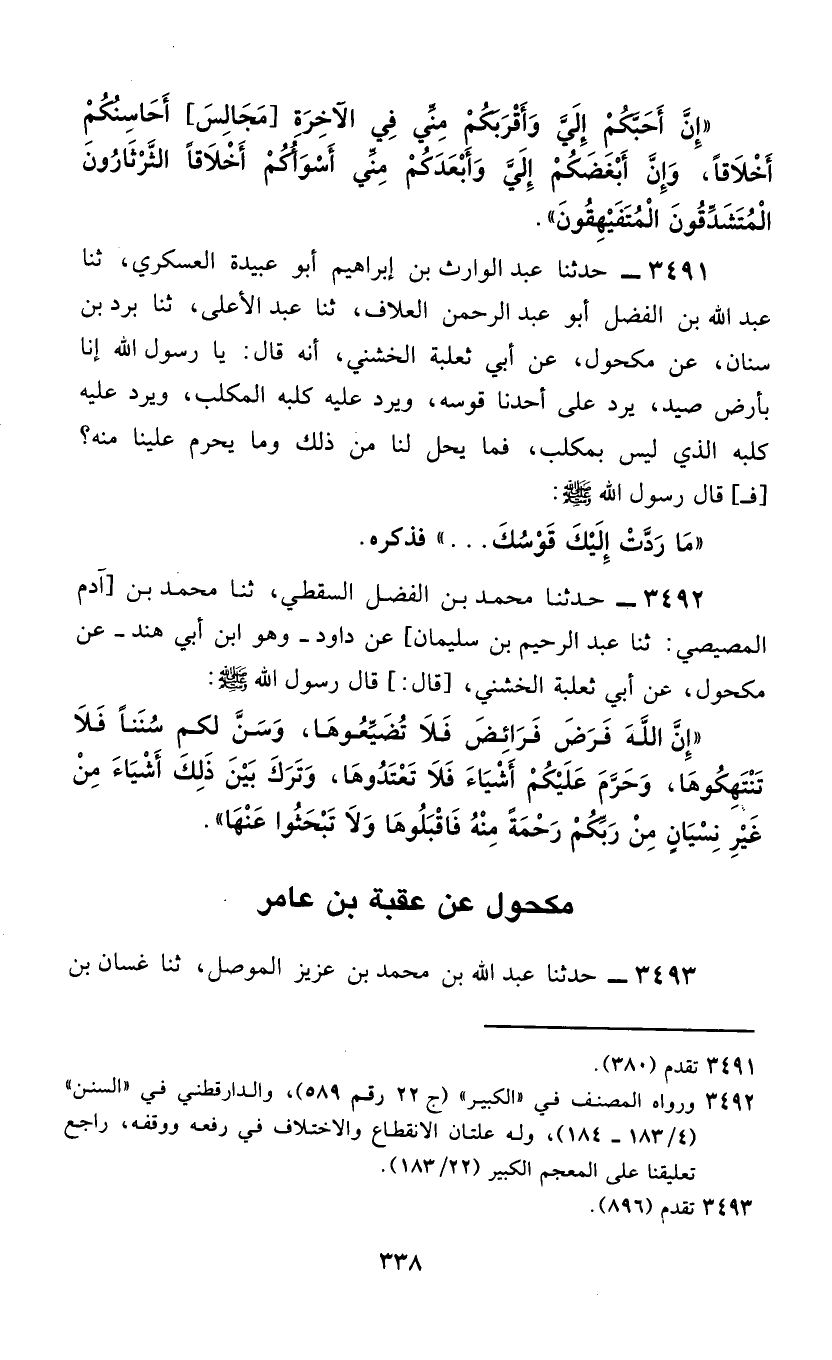 «إِنَّ أَحَبَّكُمْ إِلَيَّ وَأَقْرَبَكُمْ مِنِّي فِي الآخِرَةِ [مَجَالِسَ] أَحَاسِنُكُمْ
أَخْلَاقاً، وَإِنَّ أَبْغَضَكُمْ إِلَيَّ وَأَبْعَدَكُمْ مِنِّي أَسْوَأُكُمْ أَخْلَاقاً الثَّرْثَارُونَ
الْمُتَشَدِّقُونَ الْمُتَفَيْهِقُونَ».
٣٤٩١ ــ حدثنا عبد الوارث بن إبراهيم أبو عبيدة العسكري، ثنا
عبد الله بن الفضل أبو عبد الرحمن العلاف، ثنا عبد الأعلى، ثنا برد بن
سنان، عن مكحول، عن أبي ثعلبة الخشني، أنه قال: يا رسول الله إنا
بأرض صيد، يرد على أحدنا قوسه، ويرد عليه كلبه المكلب، ويرد عليه
كلبه الذي ليس بمكلب، فما يحل لنا من ذلك وما يحرم علينا منه؟
[فـ] قال رسول الله ﷺ:
«مَا رَدَّتْ إِلَيْكَ قَوْسُكَ...» فذكره.
٣٤٩٢ ــ حدثنا محمد بن الفضل السقطي، ثنا محمد بن [آدم
المصيصي: ثنا عبد الرحيم بن سليمان] عن داود ـ وهو ابن أبي هند ـ عن
مكحول، عن أبي ثعلبة الخشني، [قال:] قال رسول الله ﷺ:
«إِنَّ اللَّهَ فَرَضَ فَرَائِضَ فَلَا تُضَيِّعُوهَا، وَسَنَّ لكم سُنَناً فَلَا
تَنْتَهِكُوهَا، وَحَرَّمَ عَلَيْكُمْ أَشْيَاءَ فَلَا تَعْتَدُوهَا، وَتَرَكَ بَيْنَ ذَلِكَ أَشْيَاءَ مِنْ
غَيْرِ نِسْيَانٍ مِنْ رَبِّكُمْ رَحْمَةً مِنْهُ فَاقْبَلُوهَا وَلَا تَبْحَثُوا عَنْهَا».
مكحول عن عقبة بن عامر
٣٤٩٣ ــ حدثنا عبد الله بن محمد بن عزيز الموصل، ثنا غسان بن
٣٤٩١ تقدم (٣٨٠).
٣٤٩٢ ورواه المصنف في «الكبير» (ج ٢٢ رقم ٥٨٩)، والدارقطني في «السنن»
(٤/ ١٨٣ ـ ١٨٤)، وله علتان الانقطاع والاختلاف في رفعه ووقفه، راجع
تعليقنا على المعجم الكبير (٢٢/ ١٨٣).
٣٤٩٣ تقدم (٨٩٦).
٣٣٨